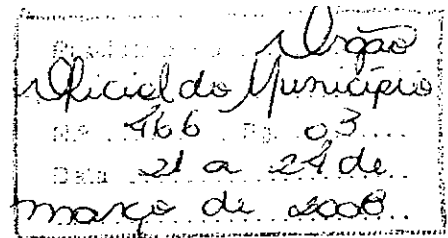 Órgão
Oficial do Município
Nº 466 Pg. 03
Data 21 a 24 de
março de 2008